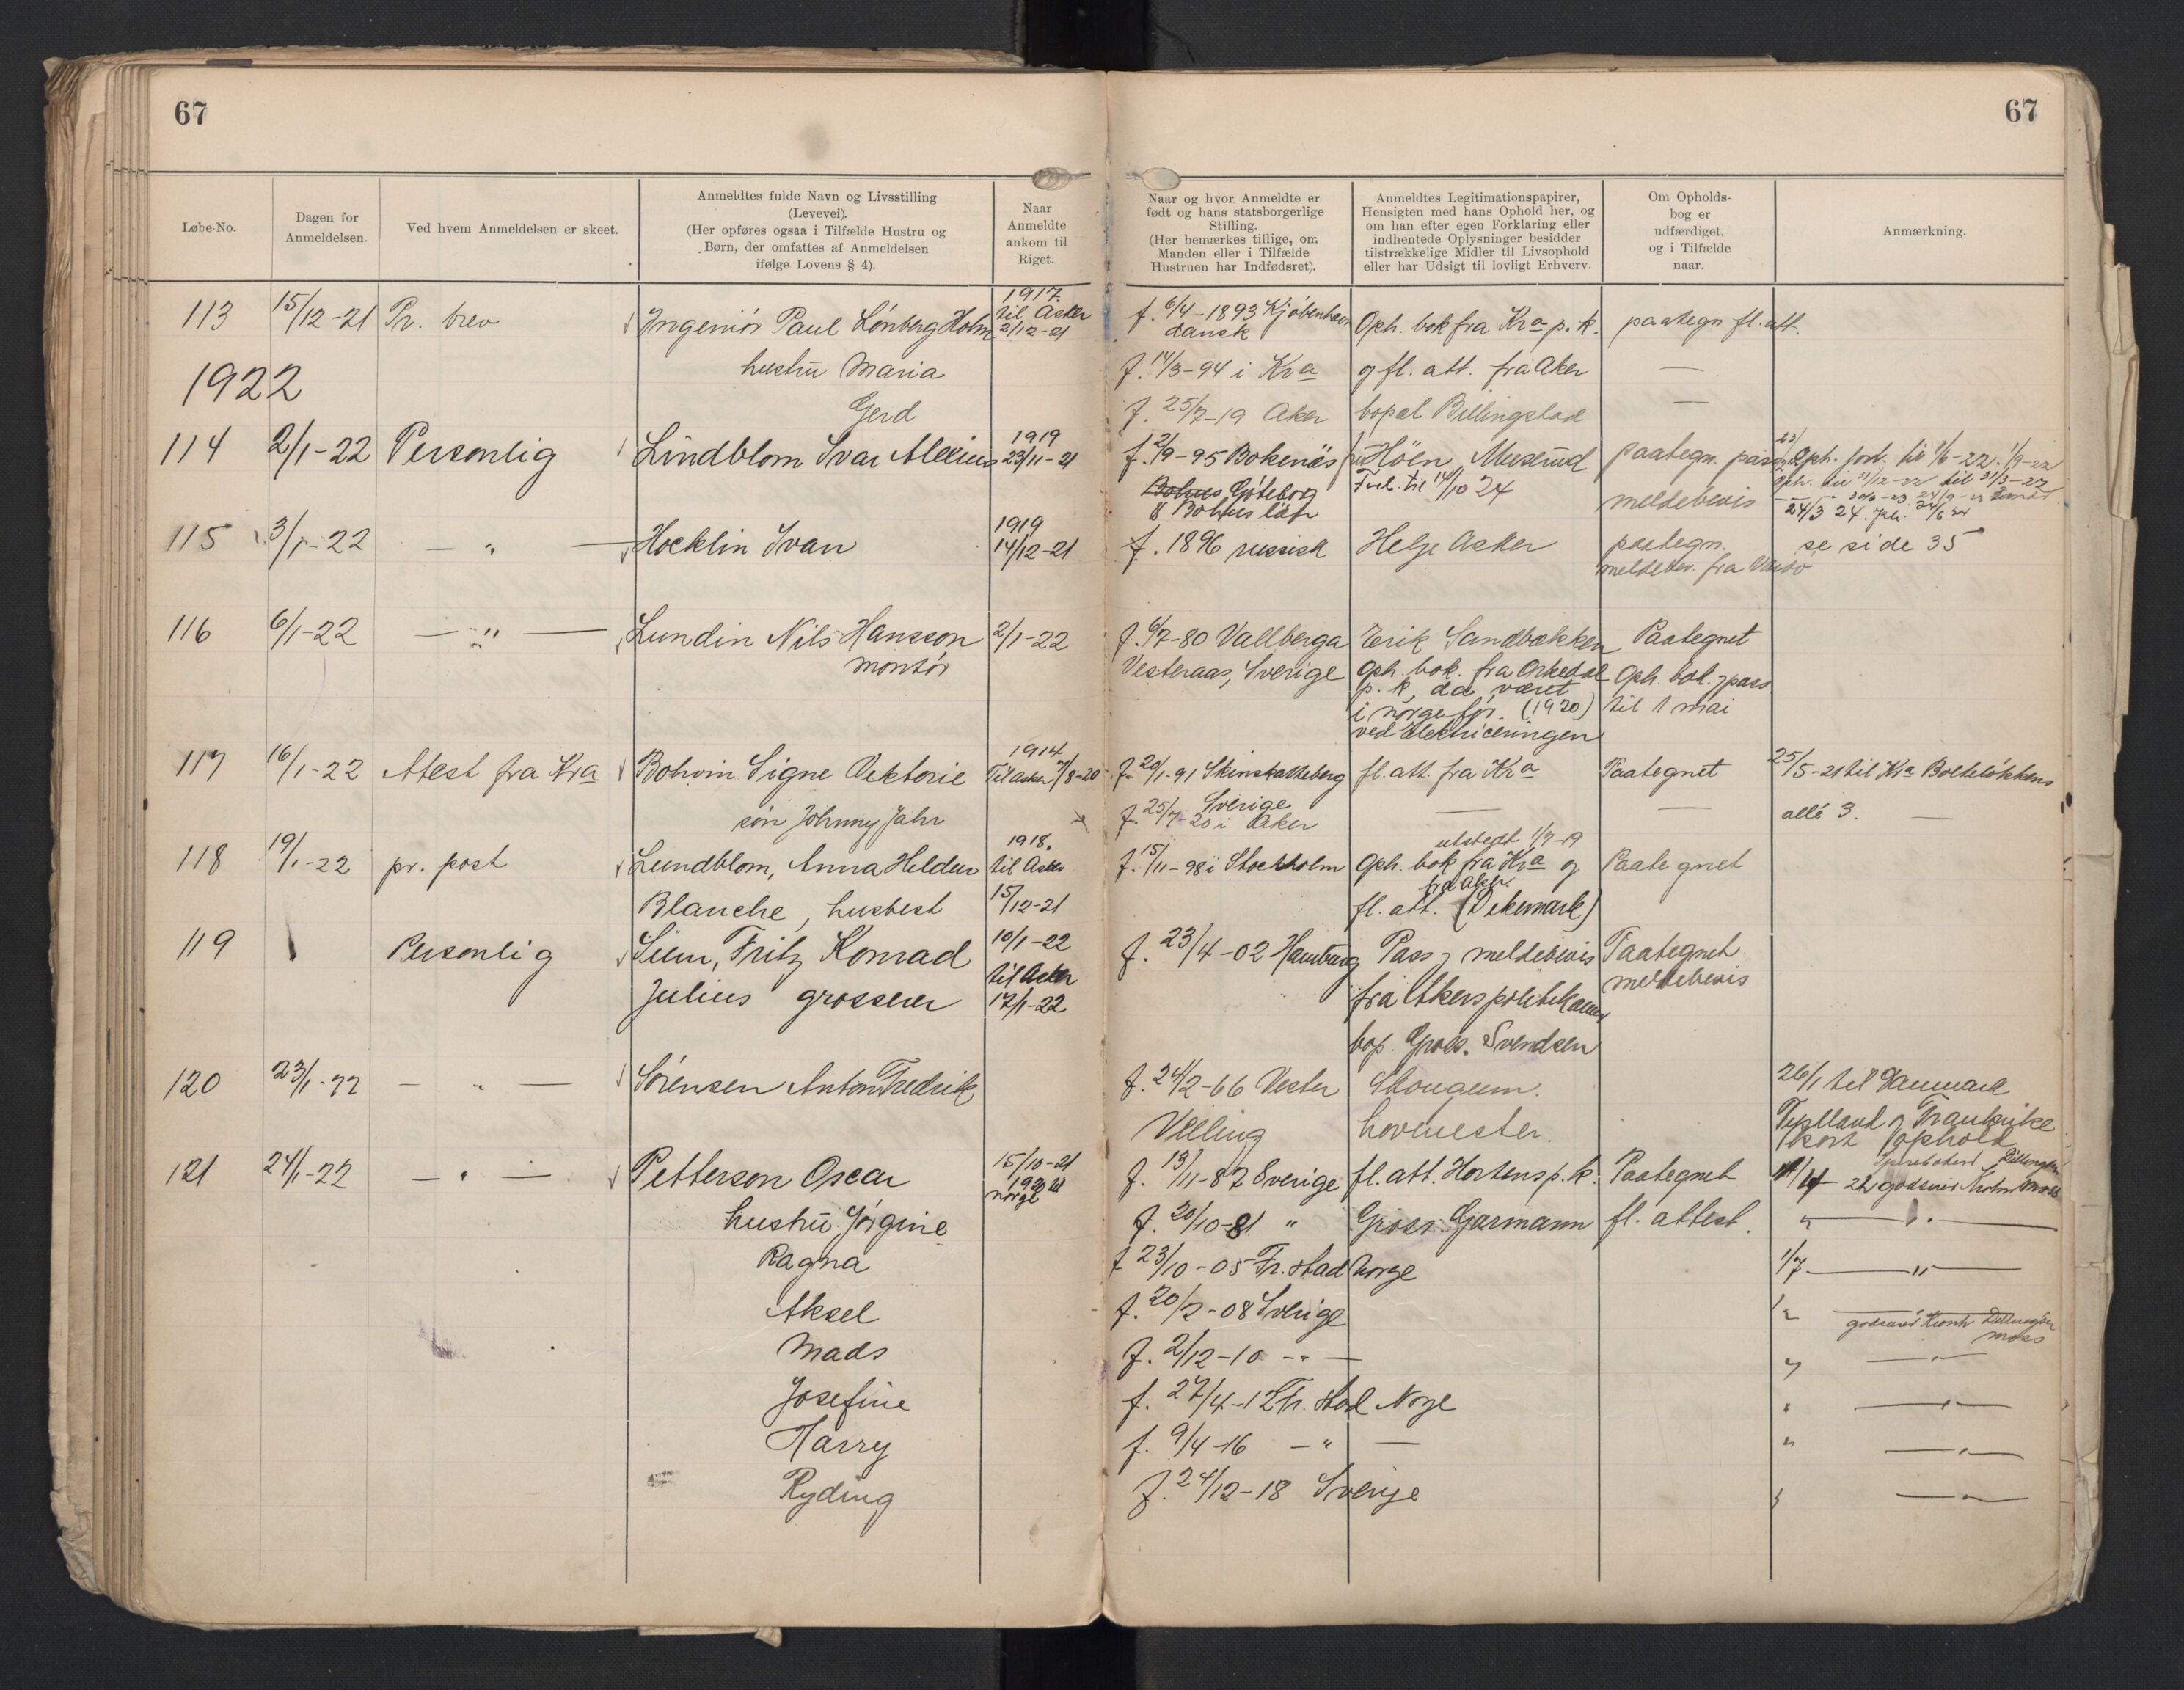 67
67
Løbe-No.
Dagen for
Anmeldelsen.
Ved hvem Anmeldelsen er skeet.
Anmeldtes fulde Navn og Livsstilling
(Levevei).
(Her opføres ogsaa i Tilfælde Hustru og
Børn, der omfattes af Anmeldelsen
ifølge Lovens § 4).
Naar
Anmeldte
ankom til
Riget.
Naar og hvor Anmeldte er
født og hans statsborgerlige
Stilling.
(Her bemærkes tillige, om
Manden eller i Tilfælde
Hustruen har Indfødsret).
Anmeldtes Legitimationspapirer,
Hensigten med hans Ophold her, og
om han efter egen Forklaring eller
indhentede Oplysninger besidder
tilstrækkelige Midler til Livsophold
eller har Udsigt til lovligt Erhverv.
Om Opholds-
bog er
udfærdiget,
og i Tilfælde
naar.
Anmærkning.
1917.
113 15/12-21 Pr. brev Ingeniør Paul Lønberg Holm til Asker 2/12-21 f. 6/4-1893 Kjøbenhavn dansk Oph. bok fra Kra p.k. paategn fl. att.
1922 hustru Maria f. 14/3-94 i Kra og fl. att. fra Aker —
Gerd f. 25/7-19 Aker bopæl Billingstad —
114 2/1-22 Personlig Lindblom Ivar Alexius 1919 23/11-21 f. 2/9-95 Bokenäs Höen, Muserud paategn. pass Oph. forl. til 1/6-22. 1/9-22
Bohus Göteborg Forl. til 14/10 24 Oph. til 31/12-22 til 31/3-23
& Bohus län meldebevis 24/3 24.
115 3/1-22 — " — Hocklin Ivan 1919 14/12-21 f. 1896 russisk Helge Asker paategn. se side 35
meldebev. fra
116 6/1-22 — " — Lundin Nils Hansson 2/1-22 f. 6/7-80 Vallberga Erik Sandbækken Paategnet
montør Vesteraas, Sverige Oph. bok. fra Orkedal Oph. bok. og pass
p.k, da været
i norge før. (1920) til 1 mai
ved elektriceringen
117 16/1-22 Atest fra Kra Bohvin Signe Viktorie 1914 Til Asker 7/8-20 f. 20/1-91 Skinskatteberg fl. att. fra Kra Paategnet 25/5-21 til Kra Bolteløkkens
Sverige
søn Johnny Jahr f. 25/7-20 i Aker — — allé 3. —
118 19/1-22 pr. post Lundblom, Anna Heldur 1918. til Asker f. 15/11-98 i Stockholm utstedt 1/7-19 Oph. bok fra Kra og Paategnet
Blanche, husbest 15/12-21 fra Aker. fl. att. (Dikemark)
119 Personlig Siem, Fritz Konrad 10/1-22 f. 23/4-02 Hamburg Pass og meldebevis Paategnet
Julius grosserer til Asker 17/1-22 fra Akers politikamer meldebevis
bop. Gros. Svendsen
120 23/1-22 — " — Sørensen Anton Fredrik f. 24/2-66 Vester Skougum. 26/1 til Danmark
Velling hovmester. Tyskland og Frankrike
kort ophold
121 24/1-22 — " — Petterson Oscar 15/10-21 norge f. 13/11-87 Sverige fl. att. Hortens p.k. Paategnet
hustru Jørgine f. 20/10-81 " Gross. Garmann fl. attest. — " —
Ragna f. 23/10-05 Fr.stad Norge 1/7 — " —
Aksel f. 20/2-08 Sverige " Moss
Mads f. 2/12-10 — " — — " —
Josefine f. 27/4-12 Fr. stad Norge — " —
Harry f. 9/4-16 — " — — " —
Ryding f. 24/12-18 Sverige — " —